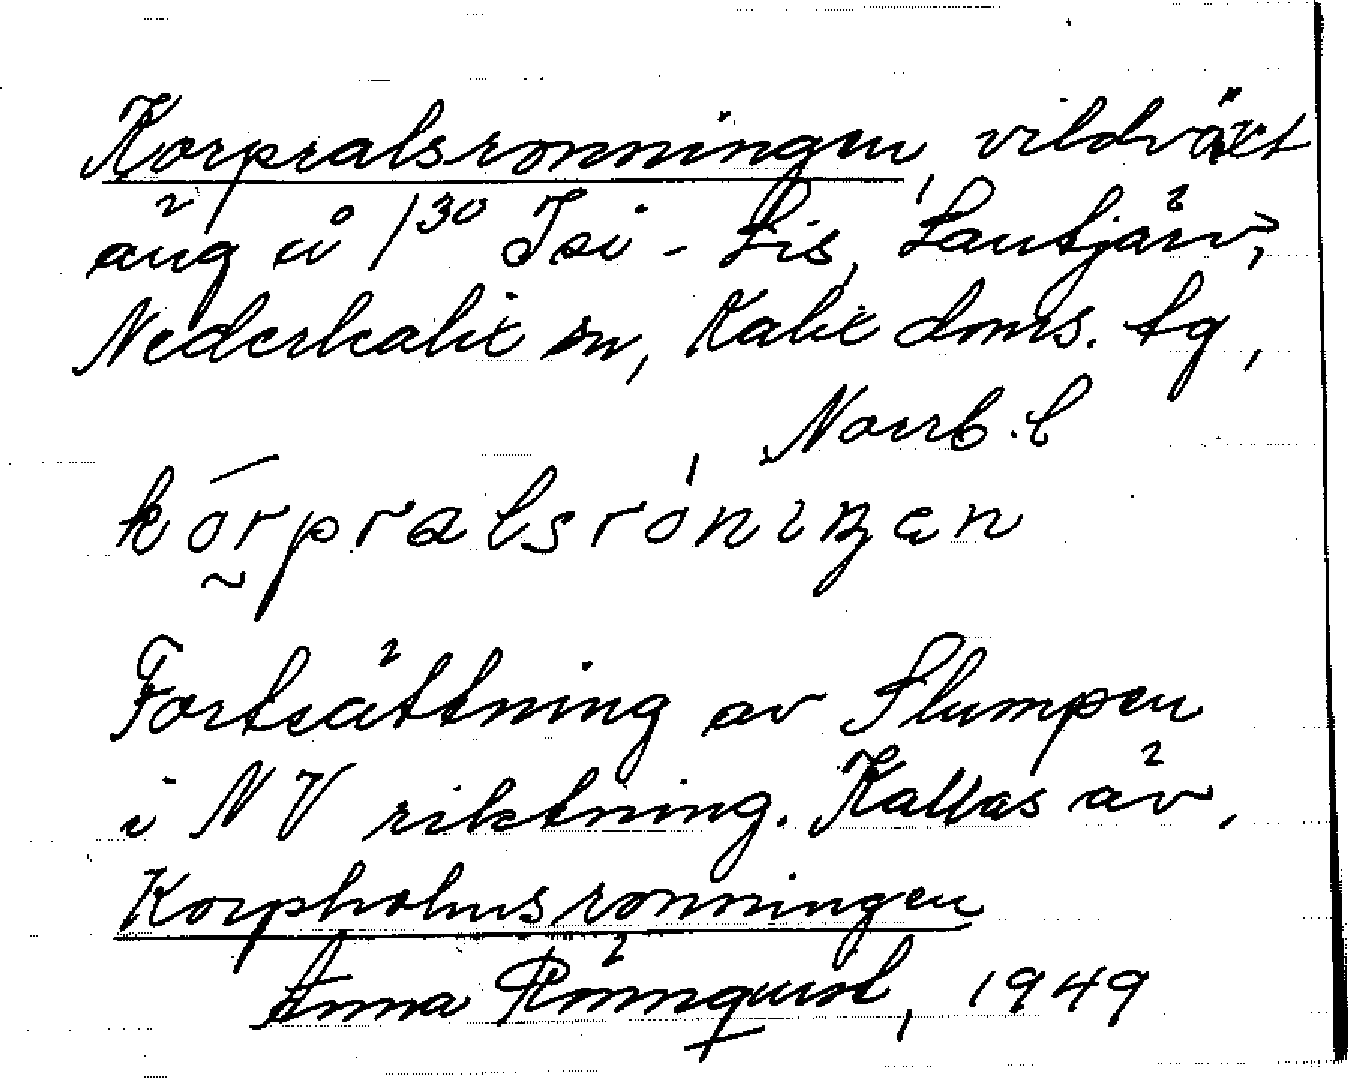 Korpralsronningen, vildväxt
äng å 1³⁰ Isi - Lis, Lantjärv,
Nederkalix sn, Kalix doms. tg,
Norrb. l
kórpralsróniŋen
Fortsättning av Slumpen
i NV riktning. Kallas äv.
Korpholmsronningen
Anna Rönnqvist, 1949